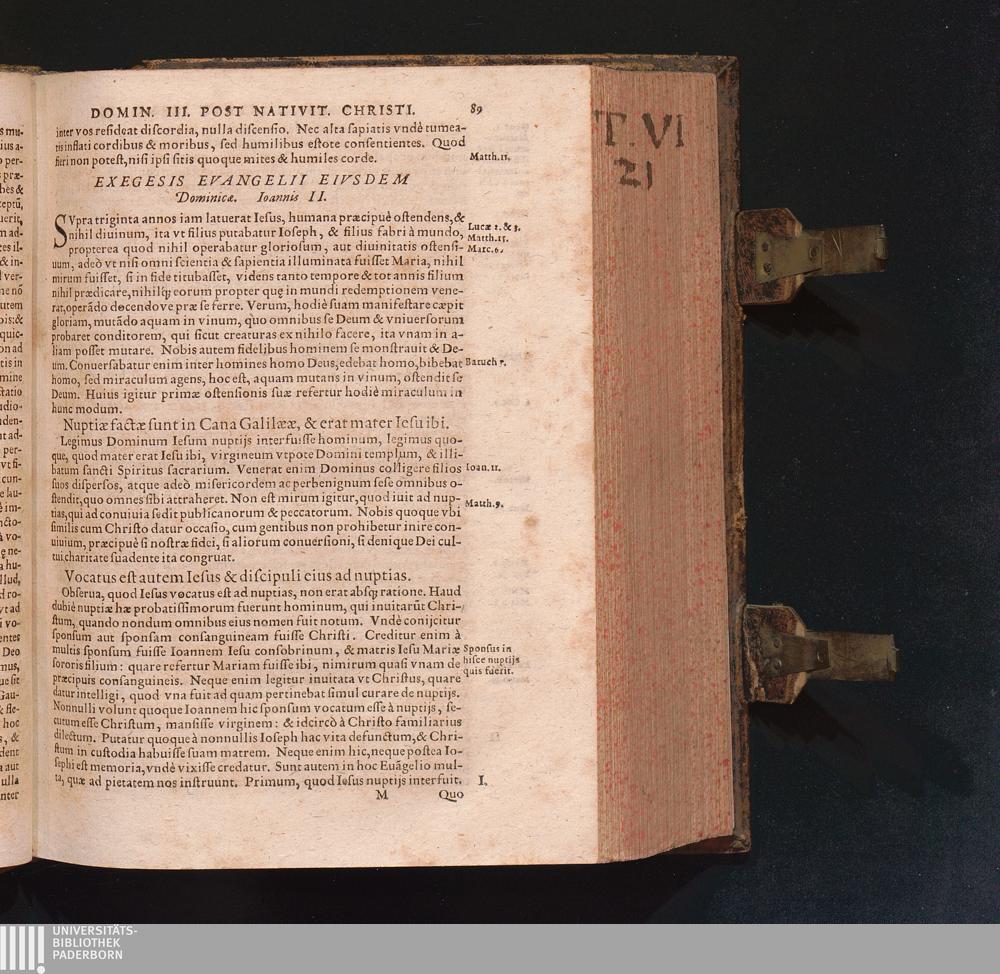 DOMIN. III. POST NATIVIT. CHRISTI. 89
inter vos resideat discordia, nulla discensio. Nec alta sapiatis vndè tumea-
tis inflati cordibus & moribus, sed humilibus estote consentientes. Quod
fieri non potest, nisi ipsi sitis quoque mites & humiles corde.
Matth.11.
EXEGESIS EVANGELII EIVSDEM
Dominicæ. Ioannis II.
SVpra triginta annos iam latuerat Iesus, humana præcipuè ostendens, &
nihil diuinum, ita vt filius putabatur Ioseph, & filius fabri à mundo,
propterea quod nihil operabatur gloriosum, aut diuinitatis ostensi-
uum, adeò vt nisi omni scientia & sapientia illuminata fuisset Maria, nihil
mirum fuisset, si in fide titubasset, videns tanto tempore & tot annis filium
nihil prædicare, nihilq́; eorum propter quę in mundi redemptionem vene-
rat, operãdo docendove præ se ferre. Verum, hodiè suam manifestare cæpit
gloriam, mutãdo aquam in vinum, quo omnibus se Deum & vniuersorum
probaret conditorem, qui sicut creaturas ex nihilo facere, ita vnam in a-
liam posset mutare. Nobis autem fidelibus hominem se monstrauit & De-
um. Conuersabatur enim inter homines homo Deus, edebat homo, bibebat
homo, sed miraculum agens, hoc est, aquam mutans in vinum, ostendit se
Deum. Huius igitur primæ ostensionis suæ refertur hodiè miraculum in
hunc modum.
Lucæ 2. & 3.
Matth.13.
Marc.6.
Baruch 3.
Nuptiæ factæ sunt in Cana Galilææ, & erat mater Iesu ibi.
Legimus Dominum Iesum nuptijs interfuisse hominum, legimus quo-
que, quod mater erat Iesu ibi, virgineum vtpote Domini templum, & illi-
batum sancti Spiritus sacrarium. Venerat enim Dominus colligere filios
suos dispersos, atque adeò misericordem ac perbenignum sese omnibus o-
stendit, quo omnes sibi attraheret. Non est mirum igitur, quod iuit ad nup-
tias, qui ad conuiuia sedit publicanorum & peccatorum. Nobis quoque vbi
similis cum Christo datur occasio, cum gentibus non prohibetur inire con-
uiuium, præcipuè si nostræ fidei, si aliorum conuersioni, si denique Dei cul-
tui, charitate suadente ita congruat.
Ioan.11.
Matth.9.
Vocatus est autem Iesus & discipuli eius ad nuptias.
Obserua, quod Iesus vocatus est ad nuptias, non erat absq́; ratione. Haud
dubiè nuptiæ hæ probatissimorum fuerunt hominum, qui inuitarũt Chri-
stum, quando nondum omnibus eius nomen fuit notum. Vndè conijcitur
sponsum aut sponsam consanguineam fuisse Christi. Creditur enim à
multis sponsum fuisse Ioannem Iesu consobrinum, & matris Iesu Mariæ
sororis filium: quare refertur Mariam fuisse ibi, nimirum quasi vnam de
præcipuis consanguineis. Neque enim legitur inuitata vt Christus, quare
datur intelligi, quod vna fuit ad quam pertinebat simul curare de nuptijs.
Nonnulli volunt quoque Ioannem hic sponsum vocatum esse à nuptijs, se-
cutum esse Christum, mansisse virginem: & idcircò à Christo familiarius
dilectum. Putatur quoque à nonnullis Ioseph hac vita defunctum, & Chri-
stum in custodia habuisse suam matrem. Neque enim hic, neque postea Io-
sephi est memoria, vndè vixisse credatur. Sunt autem in hoc Euãgelio mul-
ta, quæ ad pietatem nos instruunt. Primum, quod Iesus nuptijs interfuit.
Sponsus in
hisce nuptijs
quis fuerit.
I.
M Quo
T. VI
21
UNIVERSITÄTS-
BIBLIOTHEK
PADERBORN